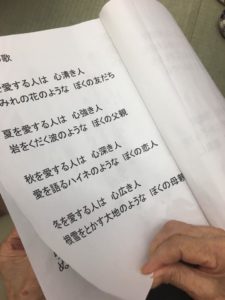 歌
を愛する人は 心清き人
みれの花のような ぼくの友だち
夏を愛する人は 心強き人
岩をくだく波のような ぼくの父親
秋を愛する人は 心深き人
愛を語るハイネのような ぼくの恋人
冬を愛する人は 心広き人
根雪をとかす大地のような ぼくの母親
ぬ